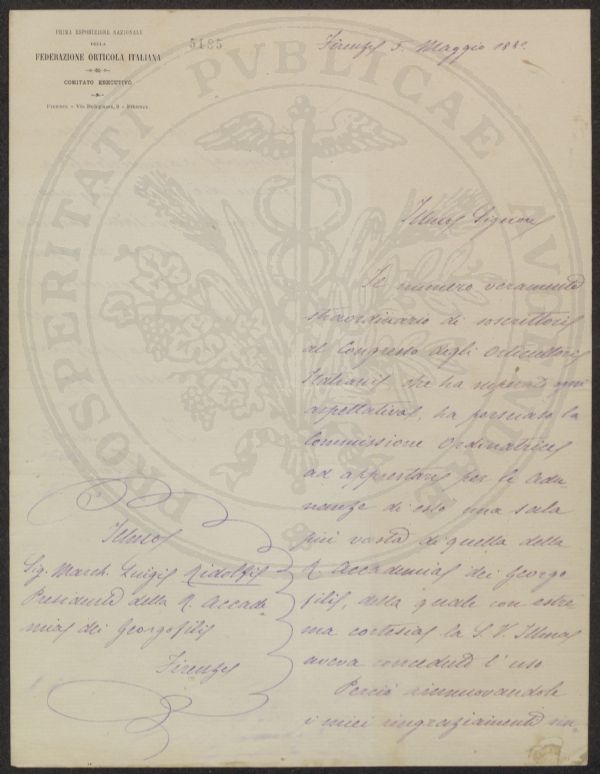 PRIMA ESPOSIZIONE NAZIONALE
DELLA
FEDERAZIONE ORTICOLA ITALIANA
COMITATO ESECUTIVO
Firenze - Via Bolognese, 9 - Firenze
5185
Firenze 5. Maggio
PROSPERITATI PUBLICAE AUGENDAE
Illmo Signore
Il numero veramente
straordinario di soscrittori
al Congresso degli Orticultori
Italiani che ha superato ogni
aspettativa, ha persuaso la
Commissione Ordinatrice
ad apprestare per le adu-
nanze di esso una sala
più vasta di quella della
R. Accademia dei Georgo
fili, della quale con estre
ma cortesia la S. V. Illma
aveva conceduto l'uso
Perciò rinnuovandole
i miei ringraziamenti
Illmo
Sig. March. Luigi Ridolfi
Presidente della R. Accade
mia dei Georgofili
Firenze